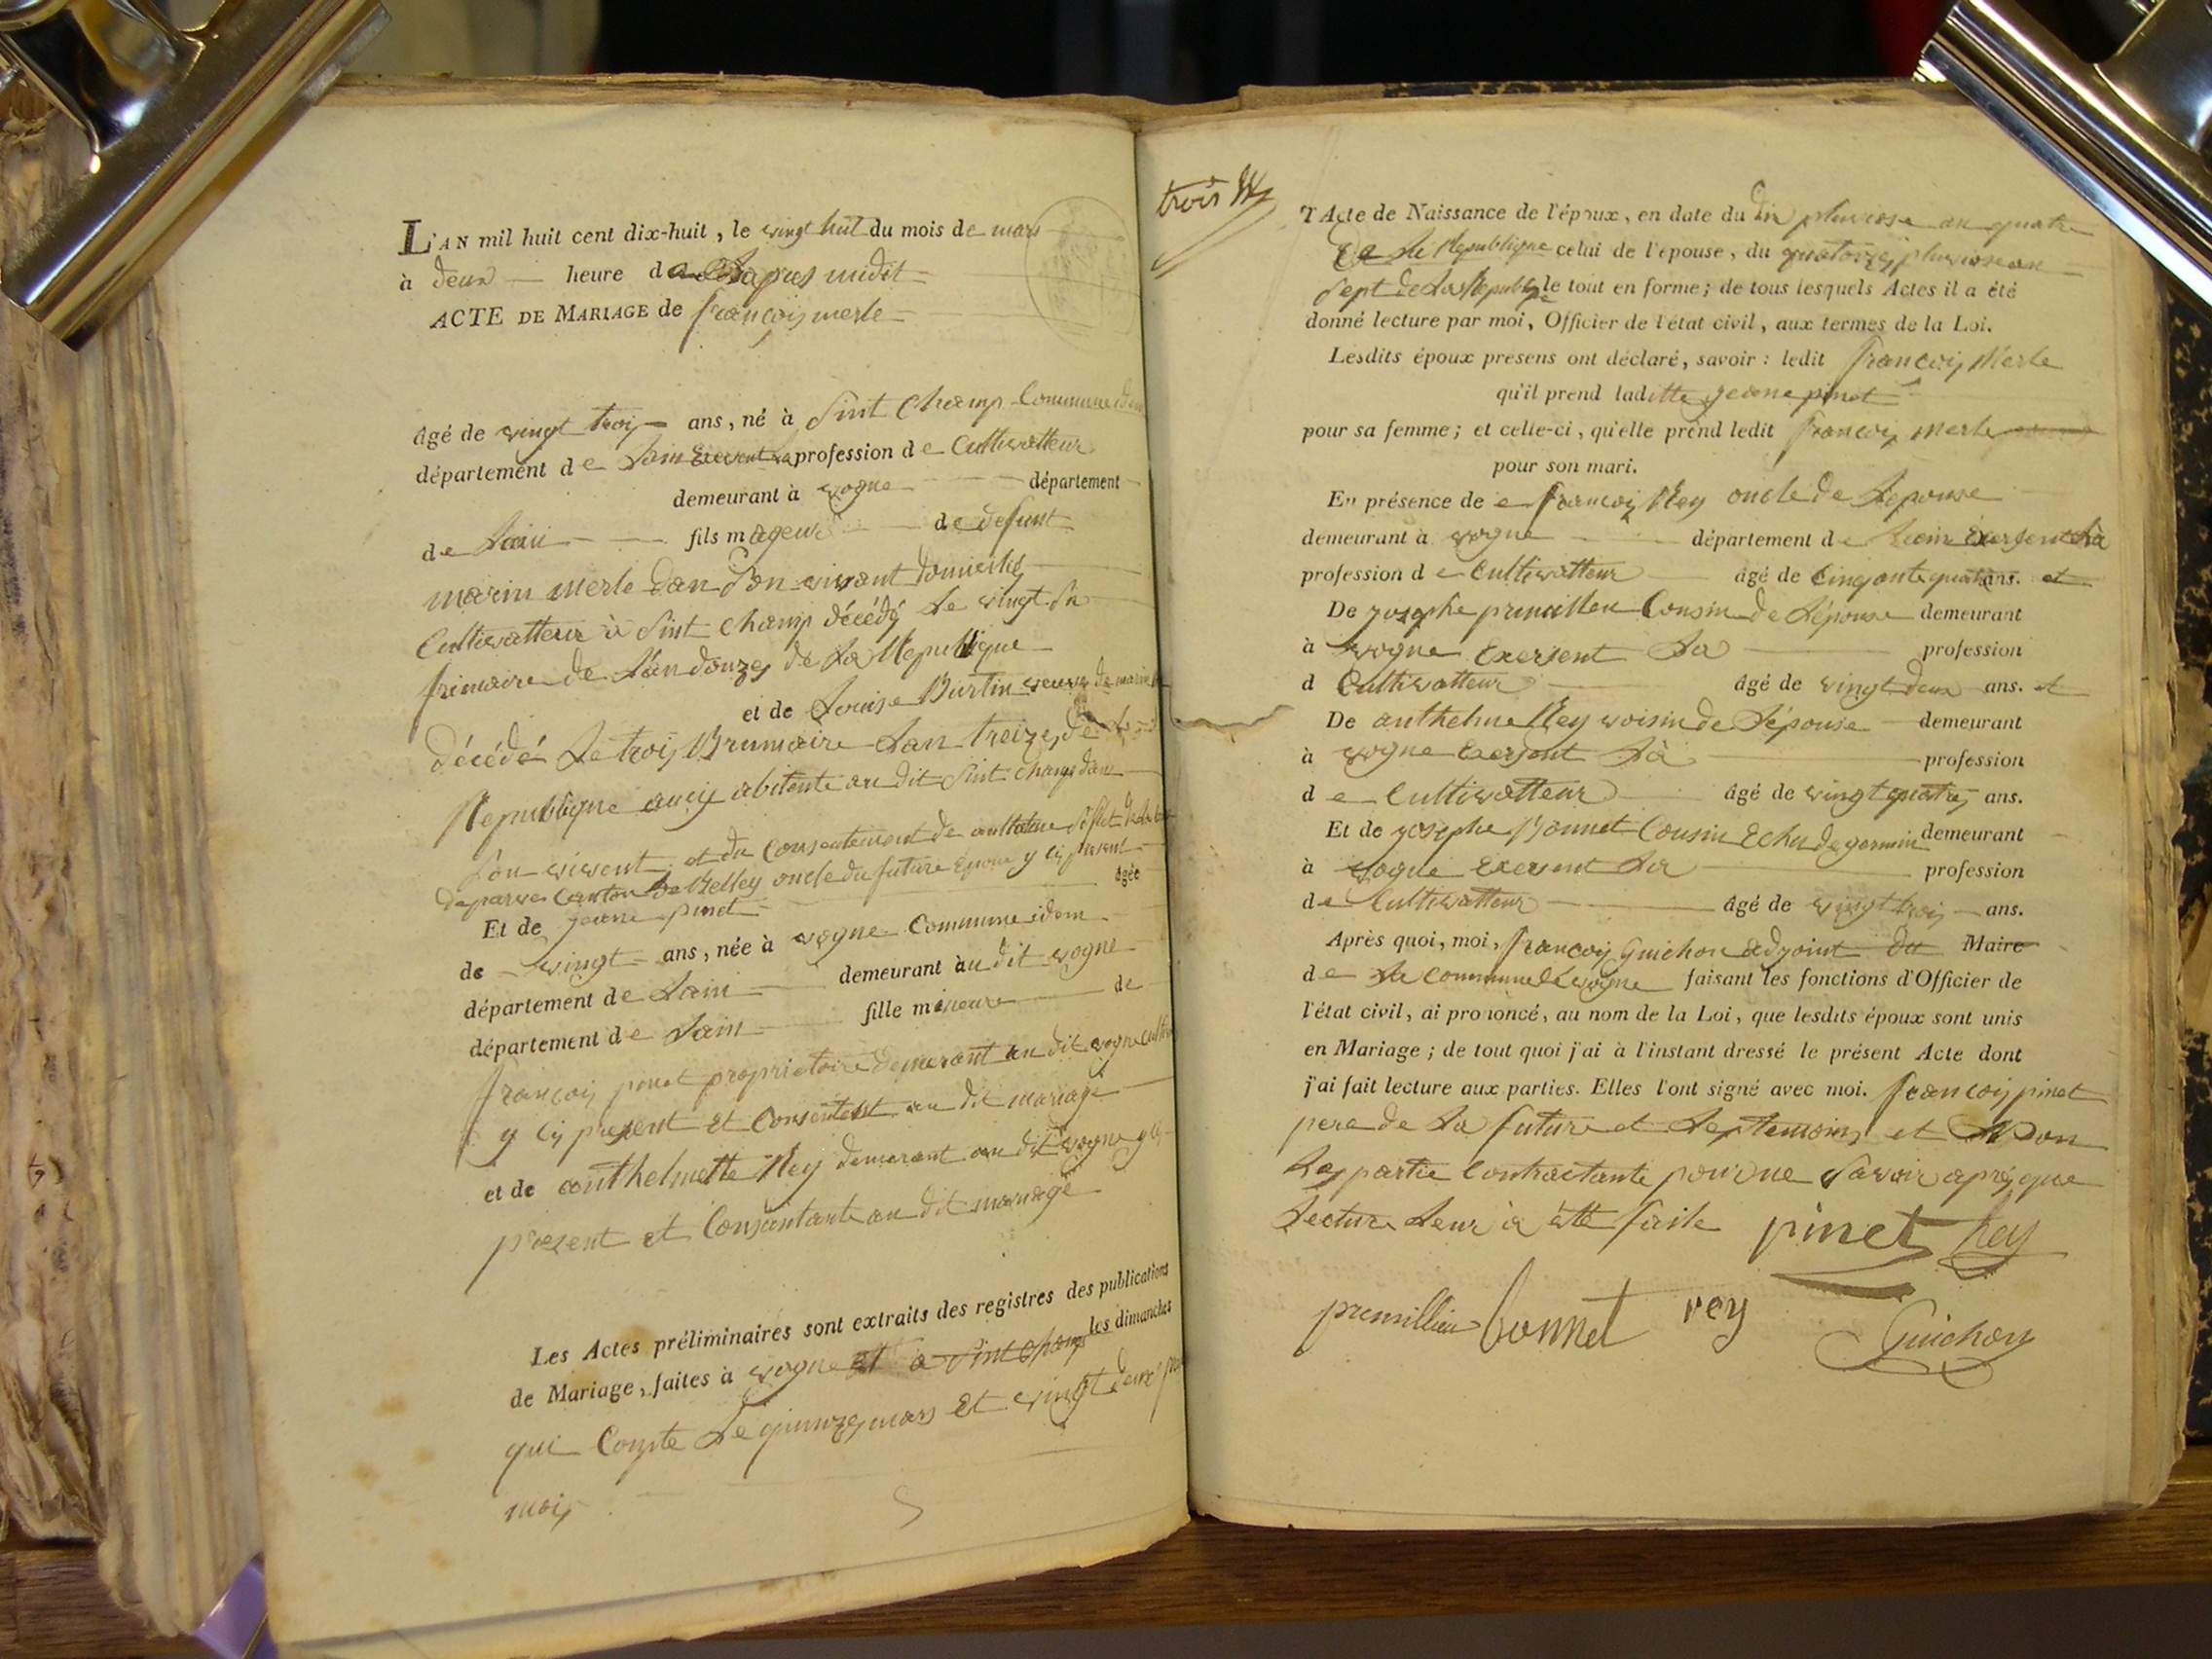 L'AN mil huit cent dix-huit, le vingt huit du mois de mars
à deux heure d apres midit
ACTE DE MARIAGE de françois merle
âgé de vingt trois ans, né à Sint Champ Commune
département de Lain profession de Cultivatteur
demeurant à vogne département
de Lain fils mageur de defunt
marin merle dan Son vivant domicilié
Cultivatteur à Sint champ décédé le vingt Six
frimaire de L'an douze de La Republique
et de Louise Burtin veuve de marin
décédé Le trois Brumaire Lan treize de
Republique aucy abitente au dit Sint champ dan
Son vivent et du Consentement de
de parves Canton De Belley oncle du future Epoux y ci present
Et de jeanne pinet âgée
de vingt ans, née à vogne Commune idem
département de Lain demeurant àu dit vogne
département de Lain fille mineure de
françois pinet propriétoire demeurant au dit vogne
y ci present et Consentent au dit mariage
et de anthelmette Rey demeurant au dit vogne y ci
present et Consantante au dit mariage
Les Actes préliminaires sont extraits des registres des publications
de Mariage, faites à vogne et a Sint Champ les dimanches
qui Compte Le quinze mars Et vingt deux
mois
trois
T Acte de Naissance de l'époux, en date du Dix pluviose an quatre
De La Republique celui de l'epouse, du quatorze pluviose an
Sept de La Republique le tout en forme; de tous lesquels Actes il a été
donné lecture par moi, Officier de l'état civil, aux termes de la Loi.
Lesdits époux présens ont déclaré, savoir : ledit françois Merle
qu'il prend laditte jeanne pinet
pour sa femme; et celle-ci, qu'elle prend ledit françois merle
pour son mari.
En présence de françois Rey oncle de Lepouse
demeurant à vogne département de Lain Exersent La
profession de Cultivatteur âgé de Cinqante quatre ans. et
De josephe premillieu Cousin de Lépouse demeurant
à vogne Exersent La profession
d Cultivatteur âgé de vingt deux ans. et
De anthelme Rey voisin de Lépouse demeurant
à vogne Exersent La profession
de Cultivatteur âgé de vingt quatre ans.
Et de josephe Bonnet Cousin de germin demeurant
à vogne Exersent La profession
de Cultivatteur âgé de vingt trois ans.
Après quoi, moi, françois Guichon adjoint du Maire
de La Commune de vogne faisant les fonctions d'Officier de
l'état civil, ai prononcé, au nom de la Loi, que lesdits époux sont unis
en Mariage; de tout quoi j'ai à l'instant dressé le présent Acte dont
j'ai fait lecture aux parties. Elles l'ont signé avec moi. françois pinet
pere de La future et Les temoins et Non
Les partie Contractante pour ne Savoir aprés que
Lecture Leur à été faite pinet Rey
premillieu bonnet rey
Guichon